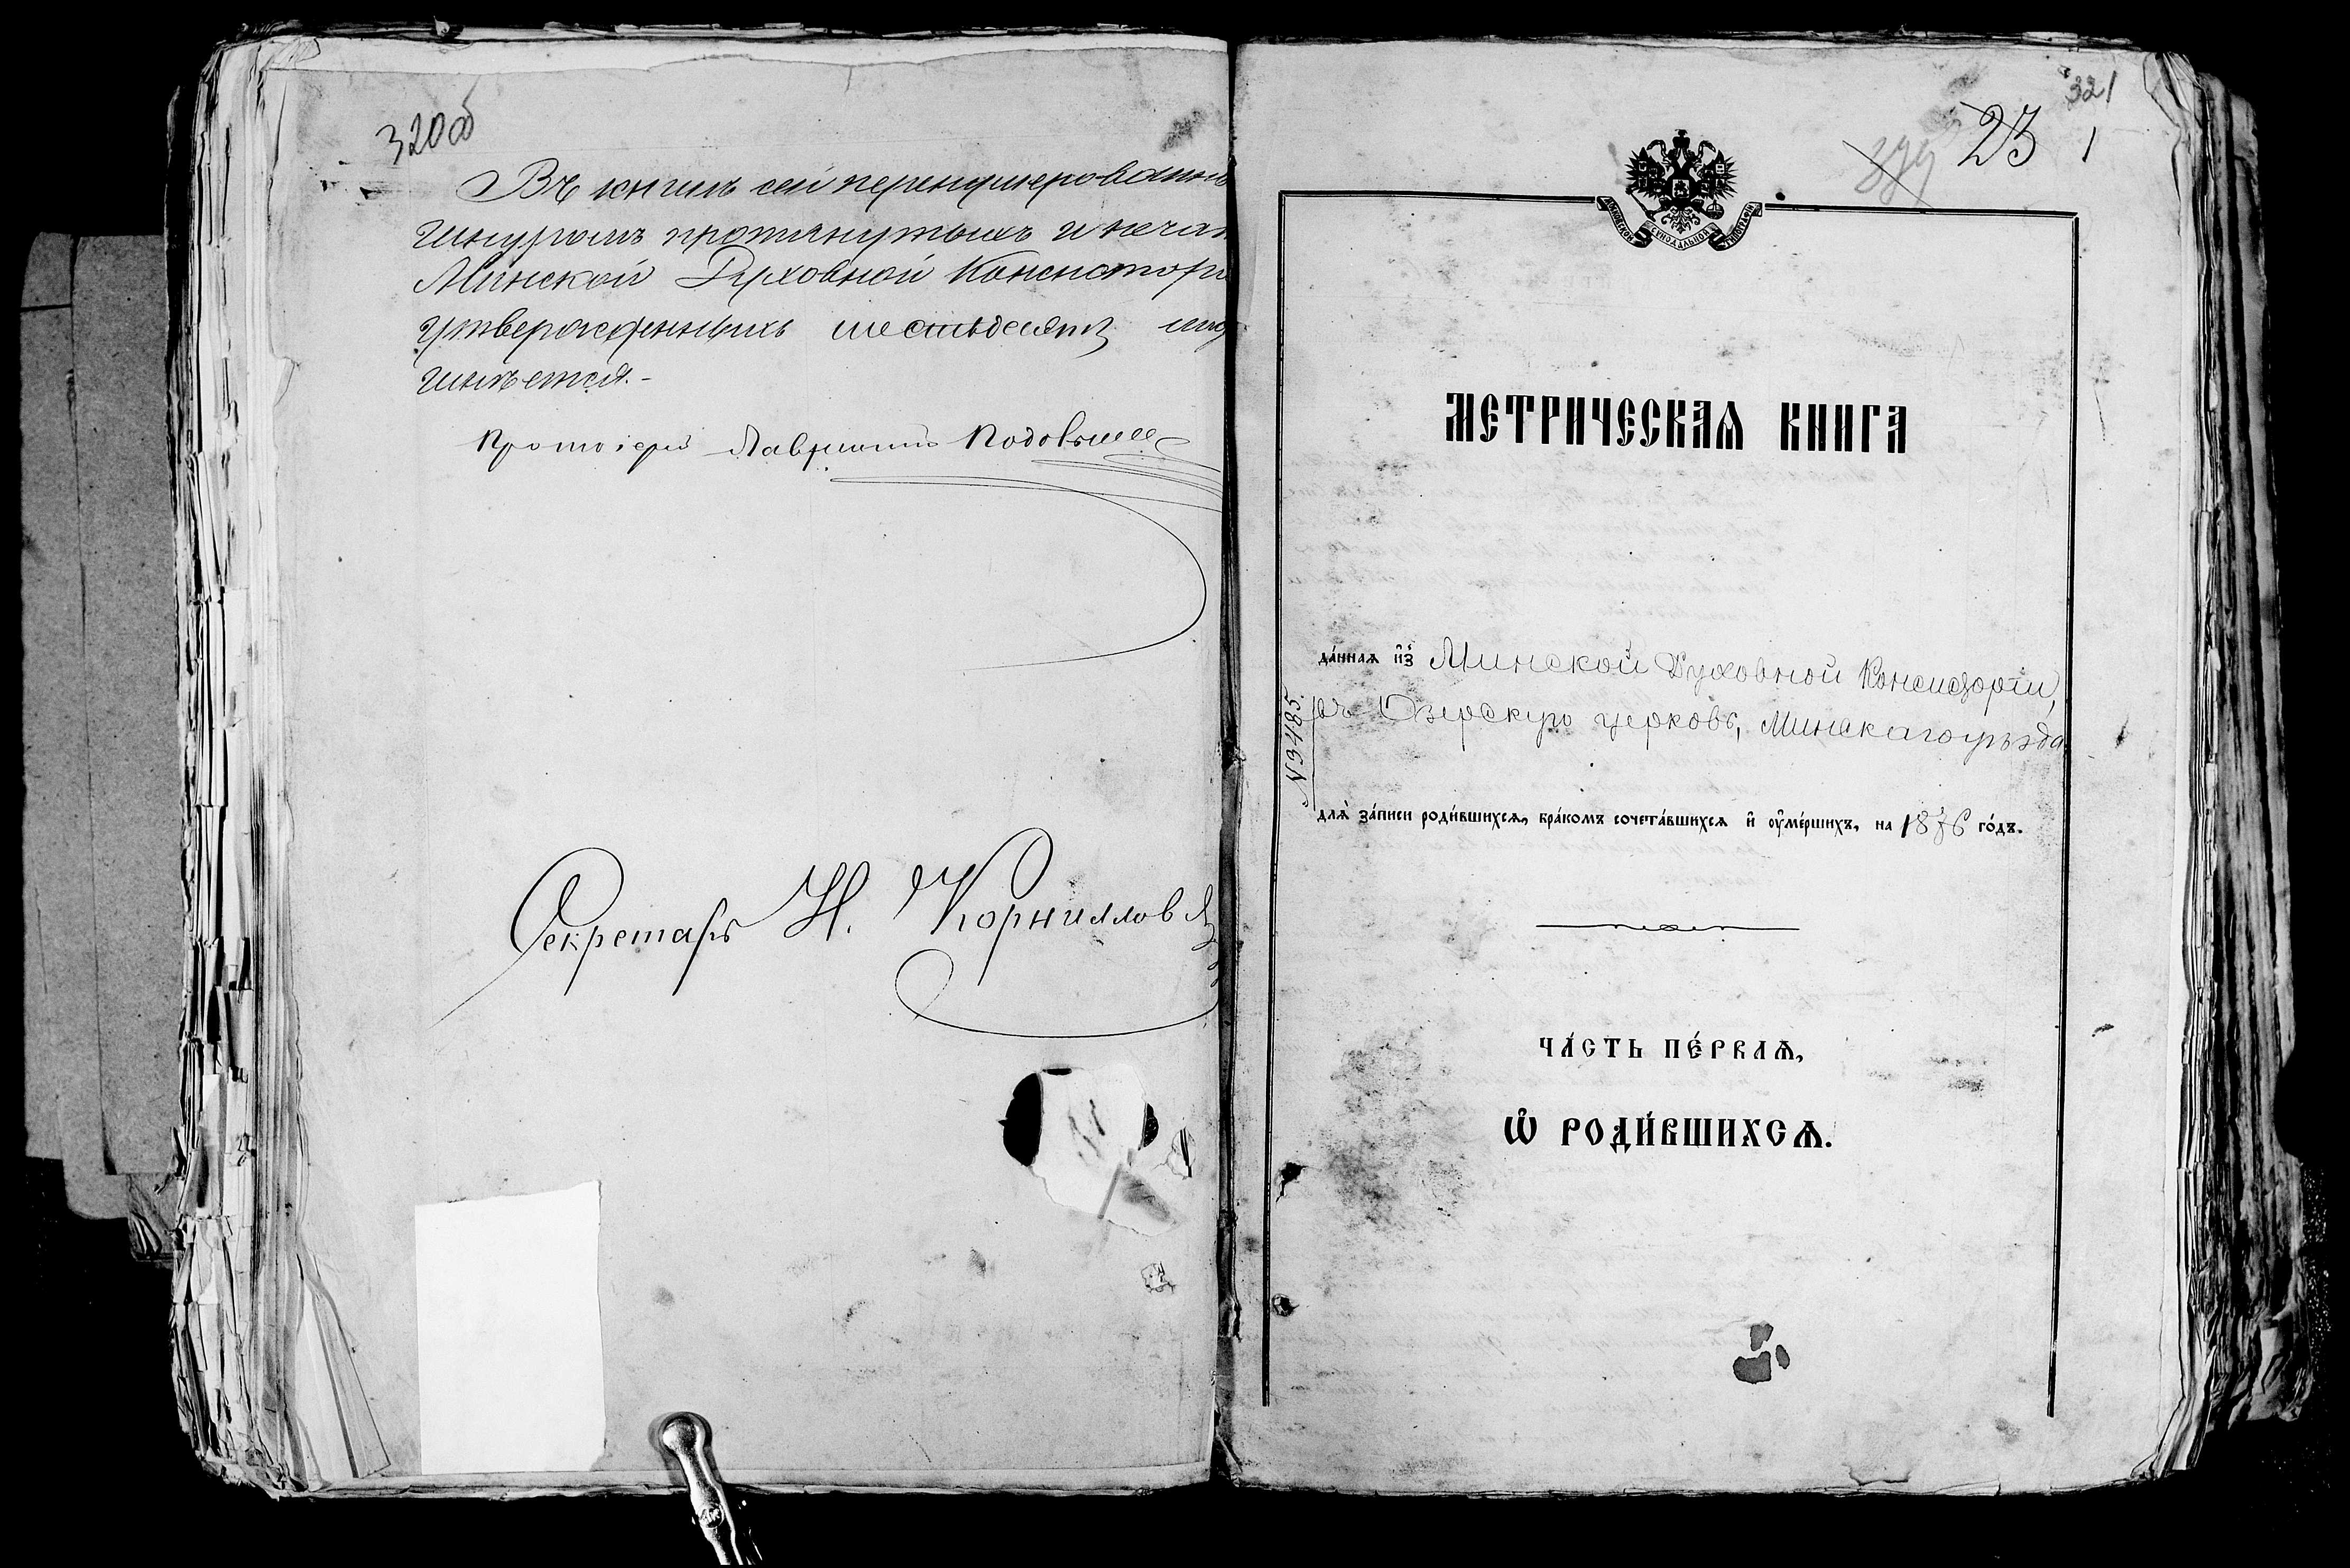 320об
Въ книгѣ сей перенумерованны
шнуромъ протянутыхъ и печат
Минской Духовной Консистори
утвержденныхъ шестьдесятъ
имѣется.-
Протоіерей Лаврентій
Секретарь Н. Корниллов
321
23 1
МОСКОВСКОЙ СѴНОДАЛЬНОЙ ТИПОГРАФІИ
МЕТРИЧЕСКАѦ КНИГА
да́ннаѧ и҆з̾ Минской Духовной Консисторіи,
въ Озерскую церковь, Минскаго уѣзда
№ 3485.
длѧ̀ за́писи роди́вшихсѧ, бра́комъ сочета́вшихсѧ и҆ ᲂу҆ме́ршихъ, на 1876 го́дъ.
ЧА́СТЬ ПЕ́РВАѦ,
Ѽ РОДИ́ВШИХСѦ.